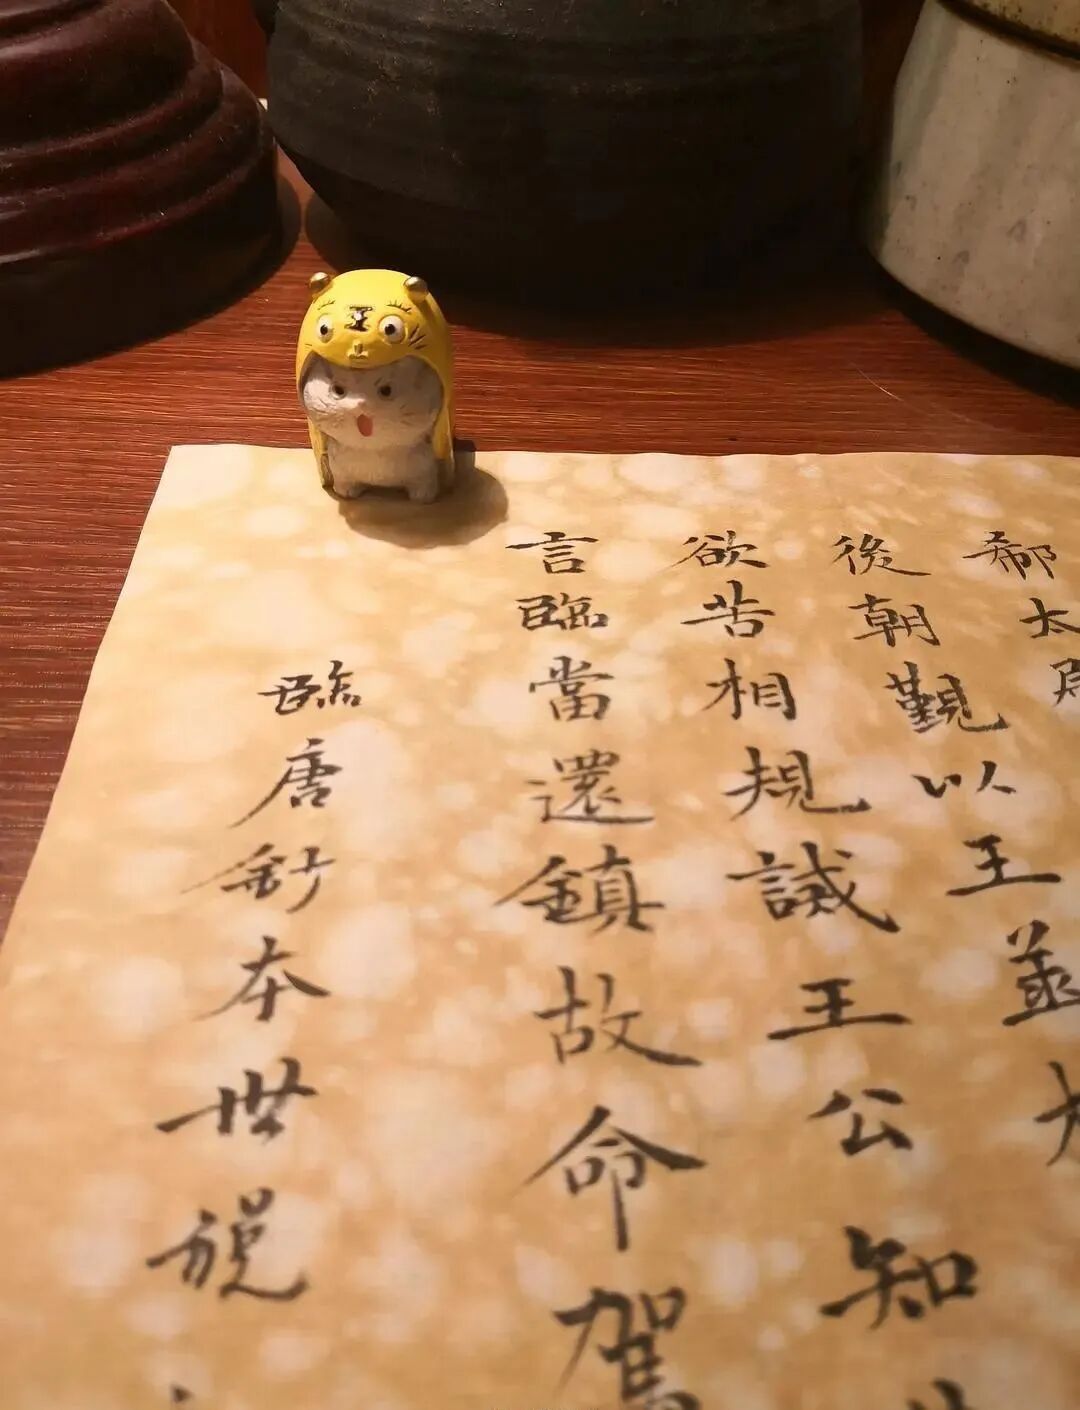 王
郗太
後朝覲以王丞
欲苦相規誡王公知
言臨當還鎮故命駕
臨唐鈔本世說